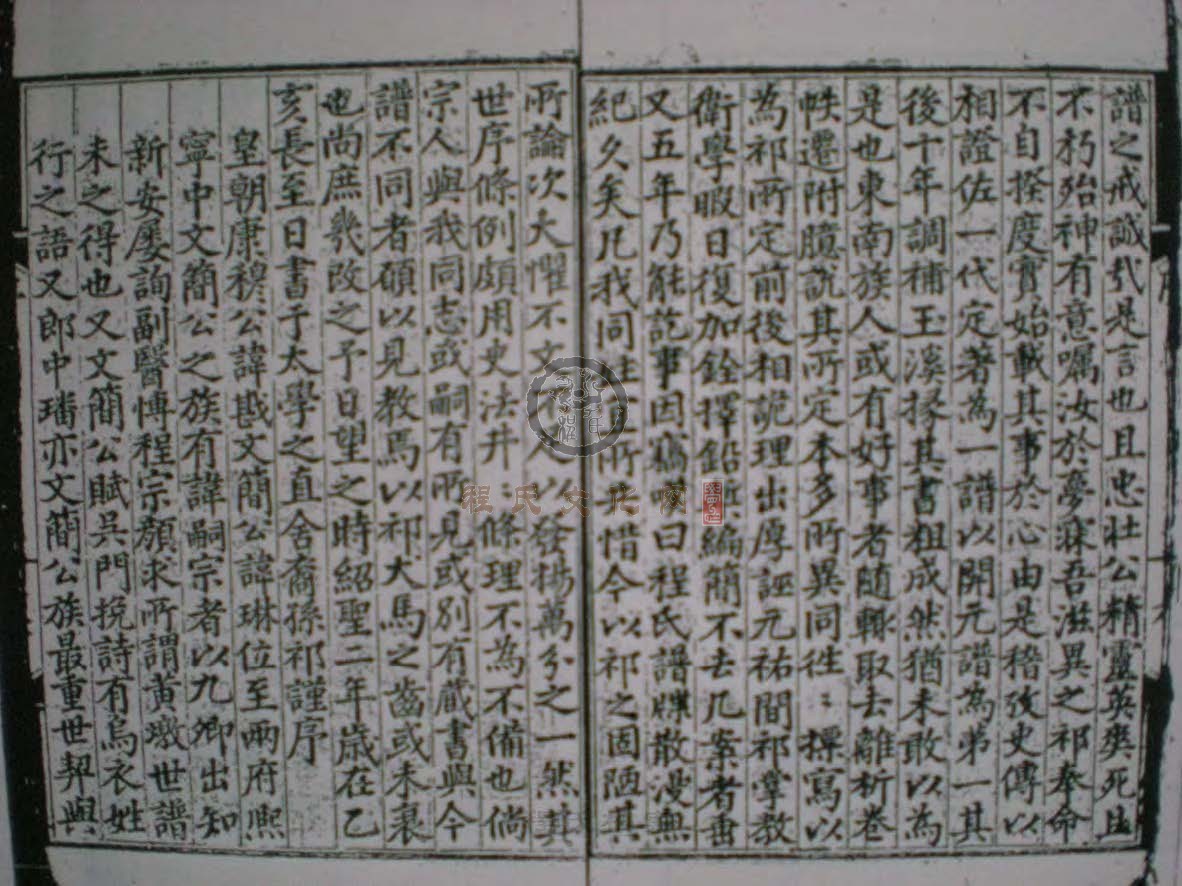 譜之戒誠哉是言也且忠壯公精靈英爽死且
不朽殆神有意囑汝於夢寐吾滋異之祁奉命
不自揆度實始載其事於心由是稽攷史傳以
相證佐一代定著為一譜以開元譜為第一其
後十年調補玉溪掾其書粗成然猶未敢以為
是也東南族人或有好事者隨輒取去離析卷
帙遷附臆說其所定本多所異同往〻摽寫以
為祁所定前後相詭理出厚誣元祐間祁掌教
衛學暇日復加銓擇鉛槧編簡不去几案者垂
又五年乃能訖事因竊嘆曰程氏譜牒散漫無
紀久矣凡我同姓所惜今以祁之固陋其
所論次大懼不文不足以發揚萬分之一然其
世序條例頗用史法井〻條理不為不備也倘
宗人與我同志或嗣有所見或別有藏書與今
譜不同者碩以見教焉以祁犬馬之齒或未衰
也尚庶幾改之予日望之時紹聖二年歲在乙
亥長至日書于太學之直舍裔孫祁謹序
皇朝康穆公諱戡文簡公諱琳位至兩府熙
寧中文簡公之族有諱嗣宗者以九卿出知
新安屢詢副醫博程宗顏求所謂黃墩世譜
未之得也又文簡公賦吳門挽詩有烏衣姓
行之語又郎中璠亦文簡公族最重世契與
程氏文化网